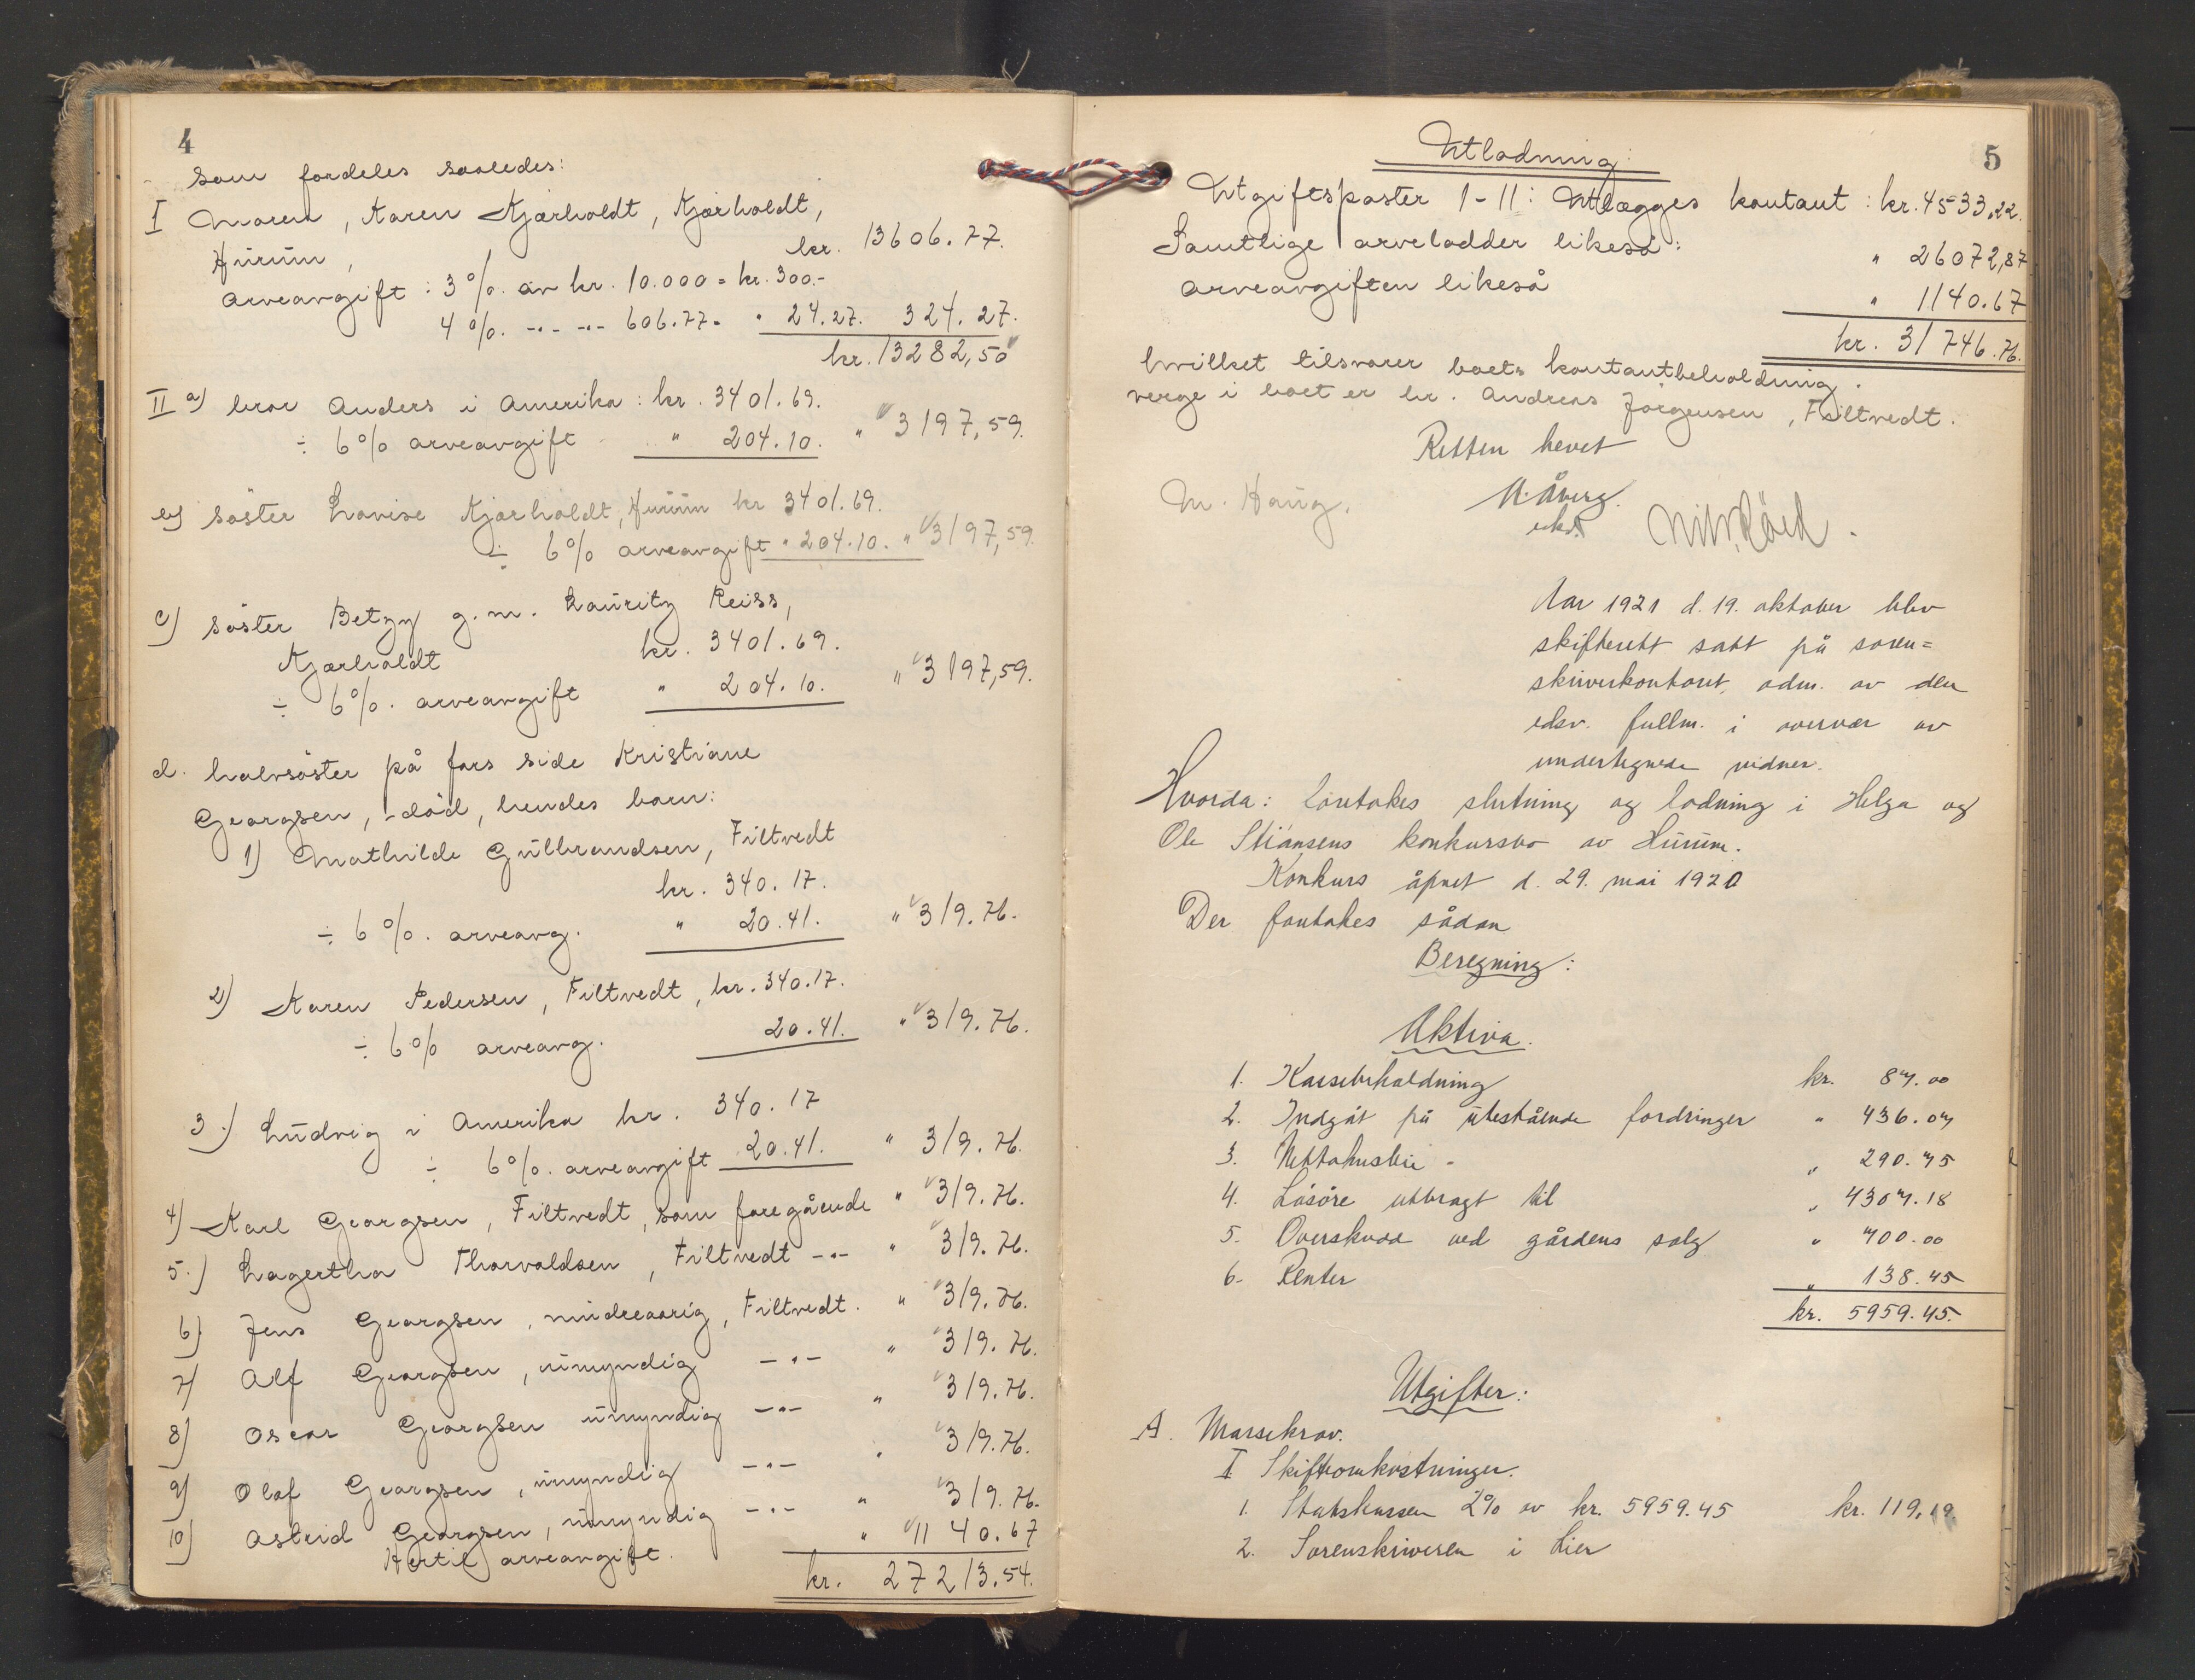 4
som fordeles saaledes:
I Moren, Karen Kjærholdt, Kjærholdt,
Hurum, kr. 13606.77.
arveavgift: 3% av kr. 10.000 = kr. 300.-
4%. -"- -"- 606.77 = " 24.27. 324.27.
kr. 13282,50
II a) bror Anders i Amerika: kr. 3401.69.
÷ 6% arveavgift " 204.10. " 3197,59.
b) søster Lovise Kjærholdt, Hurum kr 3401.69.
÷ 6% arveavgift " 204.10. " 3197,59.
c) søster Betzy g.m. Lauritz Reiss,
Kjærholdt kr. 3401.69.
÷ 6%. arveavgift " 204.10. " 3197,59.
d. halvsøster på fars side Kristiane
Georgsen, død, hendes barn:
1) Mathilde Gulbrandsen, Filtvedt
kr. 340.17.
÷ 6%. arveavg. " 20.41. " 319.76.
2) Karen Pedersen, Filtvedt, kr. 340.17.
÷ 6% arveavg. 20.41. " 319.76.
3.) Ludvig i Amerika kr. 340.17
÷ 6%. arveavgift 20.41. " 319.76.
4) Karl Georgsen, Filtvedt, som foregående " 319.76.
5.) Lagertha Thorvaldsen, Filtvedt -"- " 319.76.
6) Jens Georgsen, mindreaarig, Filtvedt. " 319.76.
7) Alf Georgsen, umyndig -"- " 319.76.
8) Oscar Georgsen umyndig -"- " 319.76.
9) Olaf Georgsen, umyndig -"- " 319.76.
10) Astrid Georgsen, umyndig -"- " 319.76.
Hertil arveavgift. " 1140.67
kr. 27213.54.
5
Utlodning:
Utgiftsposter 1-11: Utlægges kontant: kr. 4533,22.
Samtlige arvelodder likeså: " 26072,87
arveavgiften likeså " 1140.67
kr. 31746.76.
hvilket tilsvarer boets kontantbeholdning.
verge i boet er hr. Andreas Jørgensen, Filtvedt.
Retten hevet
M. Haug. N. Åberg.
edsv.
Aar 1921 d. 19. oktober blev
skifterett satt på soren=
skriverkontoret, adm. av den
edsv. fullm. i overvær av
undertegnede vidner.
Hvorda: foretokes slutning og lodning i Helga og
Ole Stiansens konkursbo av Hurum.
Konkurs åpnet d. 29. mai 1920
Der foretokes sådan
Beregning:
Aktiva.
1. Kassebeholdning kr. 87.00
2. Indgåt på utestående fordringer " 436.07
3. Nettohusleie - " 290.75
4. Løsøre utbragt til " 4307.18
5. Overskudd ved gårdens salg " 700.00
6. Renter " 138.45
kr. 5959.45.
Utgifter:
A. Massekrav.
I Skifteomkostninger.
1. Statskassen 2% av kr. 5959.45 kr. 119.19
2. Sorenskriveren i Lier